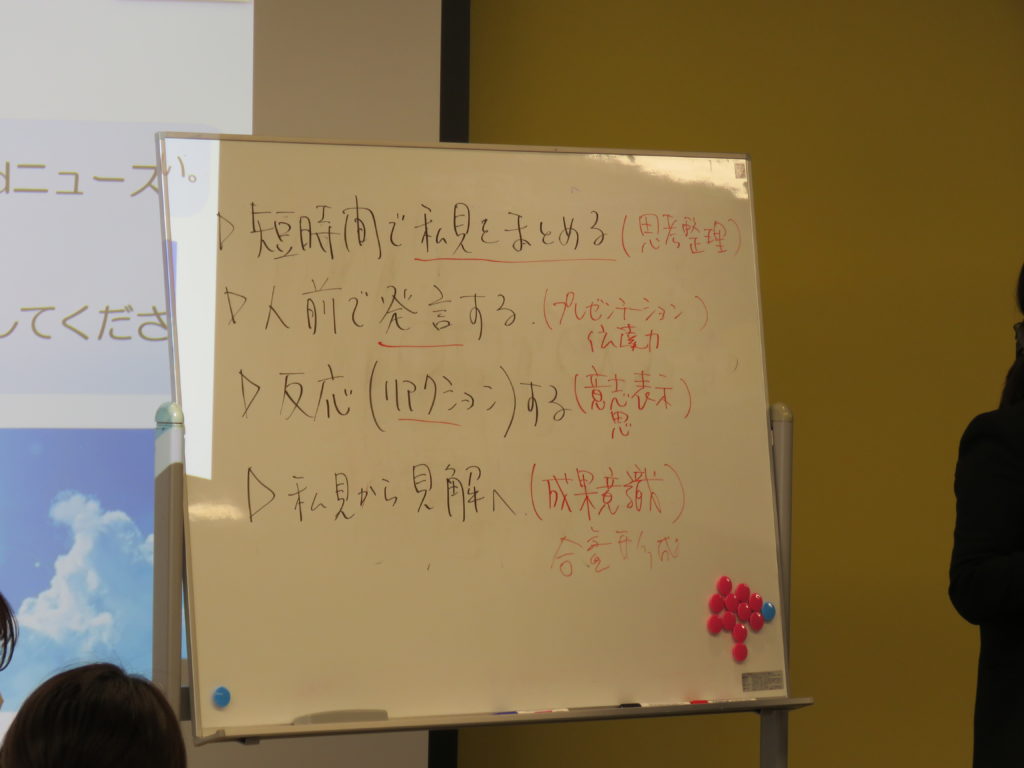 dニュース
い。
してくださ
▷ 短時間で私見をまとめる (思考整理)
▷ 人前で発言する. (プレゼンテーション)
伝達力
▷ 反応 (リアクション) する (意志表示)
思
▷ 私見から見解へ. (成果意識)
合意形成